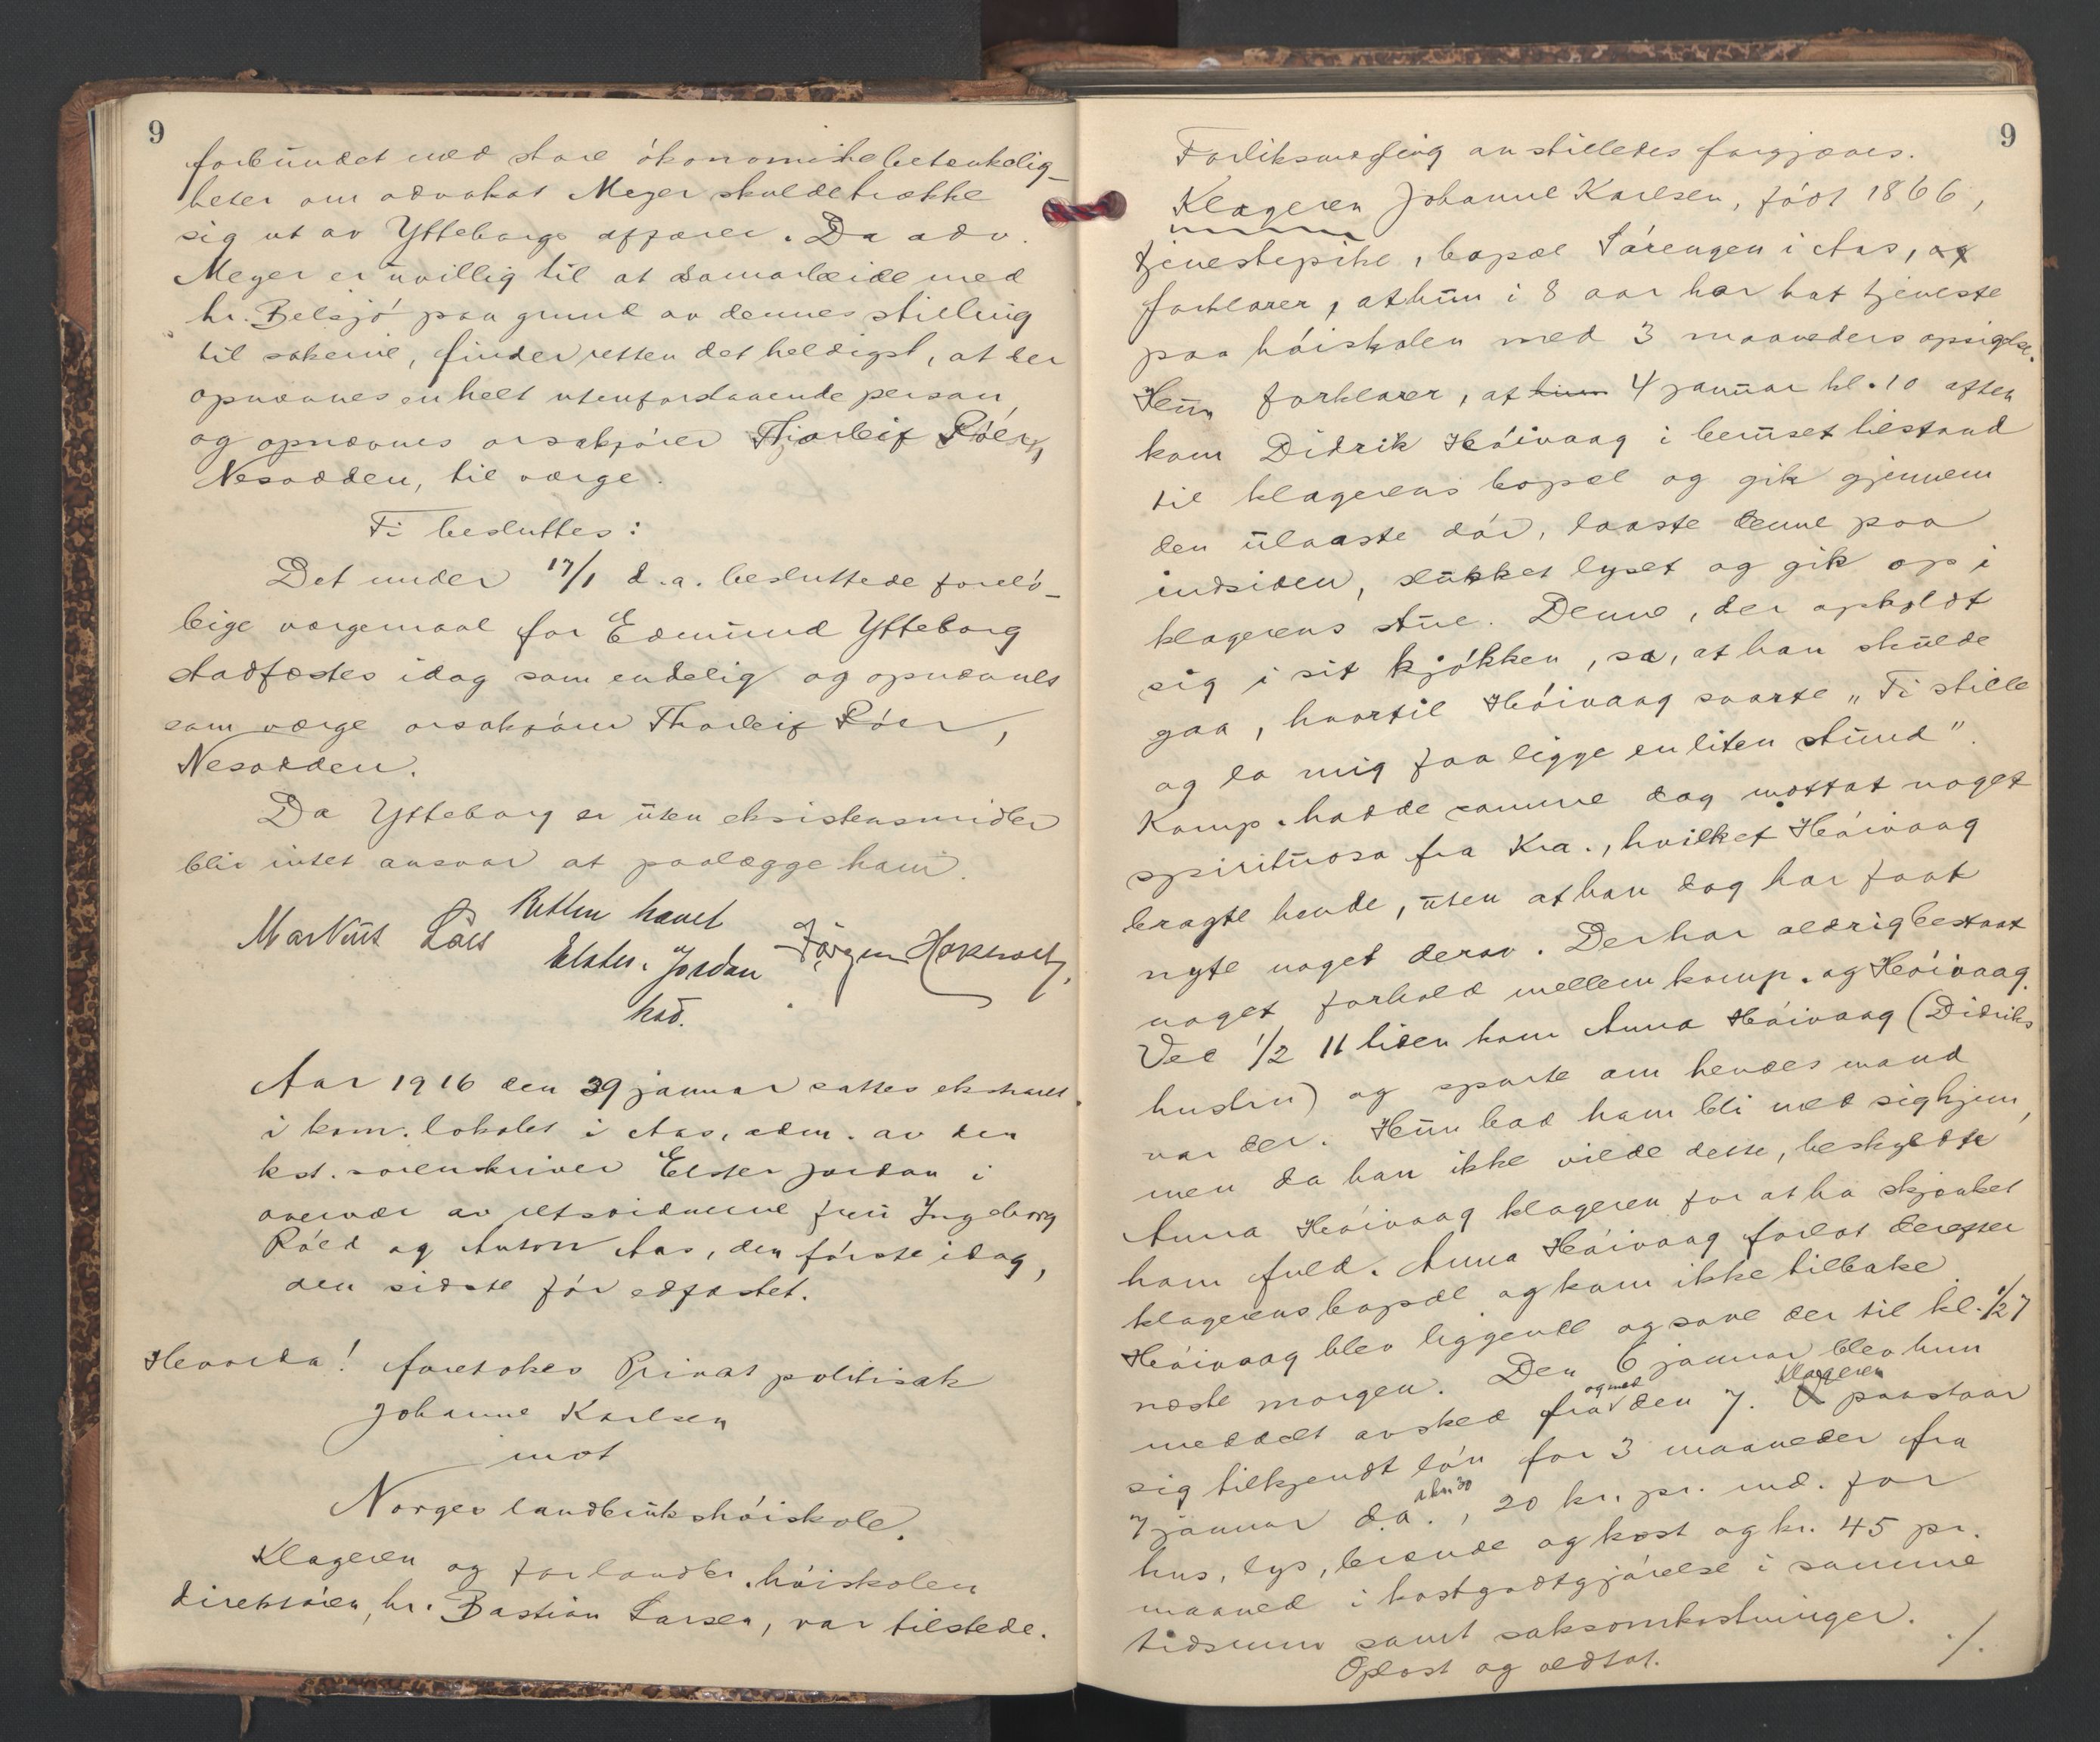 9
forbundet med store ökonomiske betænkelig-
heter om advokat Meyer skulde trække
sig ut av Ytteborgs affærer. Da adv.
Meyer er uvillig til at samarbeide med
hr. Belsjö paa grund av dennes stilling
til sakerne, finder retten det heldigst, at der
opnævnes en helt utenforstaaende person,
og opnævnes orsakfører Thorleif Röer,
Nesodden, til værge.
Ti besluttes:
Det under 17/1 d.a. besluttede forelö-
bige værgemaal for Edmund Ytteborg
stadfæstes idag som endelig og opnævnes
som værge orsakförer Thorleif Röer,
Nesodden.
Da Ytteborg er uten eksistensmidler
blir intet ansvar at paalægge ham.
Retten hævet
Markus Laes Elster Jordan Jørgen
kst.
Aar 1916 den 29 januar sattes ekstraret
i kom. lokalet i Aas, adm. av den
kst. sorenskriver Elster Jordan i
overvær av retsvidnerne fru Ingeborg
Röed og Anton Aas, den förste idag,
den sidste för edfæstet.
Hvorda! foretokes Privat politisak
Johanne Karlsen
mot
Norges landbrukshöiskole.
Klageren og for landbr. höiskolen
direktören, hr. Bastian Larsen, var tilstede.
9
Forliksmægling anstilledes forgjæves.
Klageren Johanne Karlsen, födt 1866,
tjenestepike, bopæl Sörengen i Aas, og
forklarer, at hun i 8 aar har hat tjeneste
paa höiskolen med 3 maaneders opsigelse.
Hun forklarer, at hun 4 januar kl. 10 aften
kom Didrik Höivaag i beruset tilstand
til klagerens bopæl og gik gjennem
den ulaaste dör, laaste denne paa
indsiden, slukket lyset og gik op i
klagerens stue. Denne, der opholdt
sig i sit kjökken, sa, at han skulde
gaa, hvortil Höivaag svarte „Ti stille
og la mig faa ligge en liten stund".
Komp. hadde samme dag mottat noget
spirituosa fra Kra., hvilket Höivaag
bragte hende, uten at han dog har faat
nyte noget derav. Der har aldrig bestaat
noget forhold mellem komp. og Höivaag.
Ved 1/2 11 tiden kom Anna Höivaag (Didriks
hustru) og spurte om hendes mand
var der. Hun bad ham bli med sig hjem,
men da han ikke vilde dette, beskyldte
Anna Höivaag klageren for at ha skjænket
ham fuld. Anna Höivaag forlot derefter
klagerens bopæl og kom ikke tilbake.
Höivaag blev liggende og sove der til kl. 1/2 7
næste morgen. Den 6 januar blev hun
meddelt avsked fra og med den 7. Klageren paastaar
sig tilkjendt lön for 3 maaneder fra
7 januar d.a. a kr. 30, 20 kr. pr. md. for
hus, lys, brænde og kost og kr. 45 pr.
maaned i kostgodtgjörelse i samme
tidsrum samt saksomkostninger.
Oplæst og vedtat. ./.